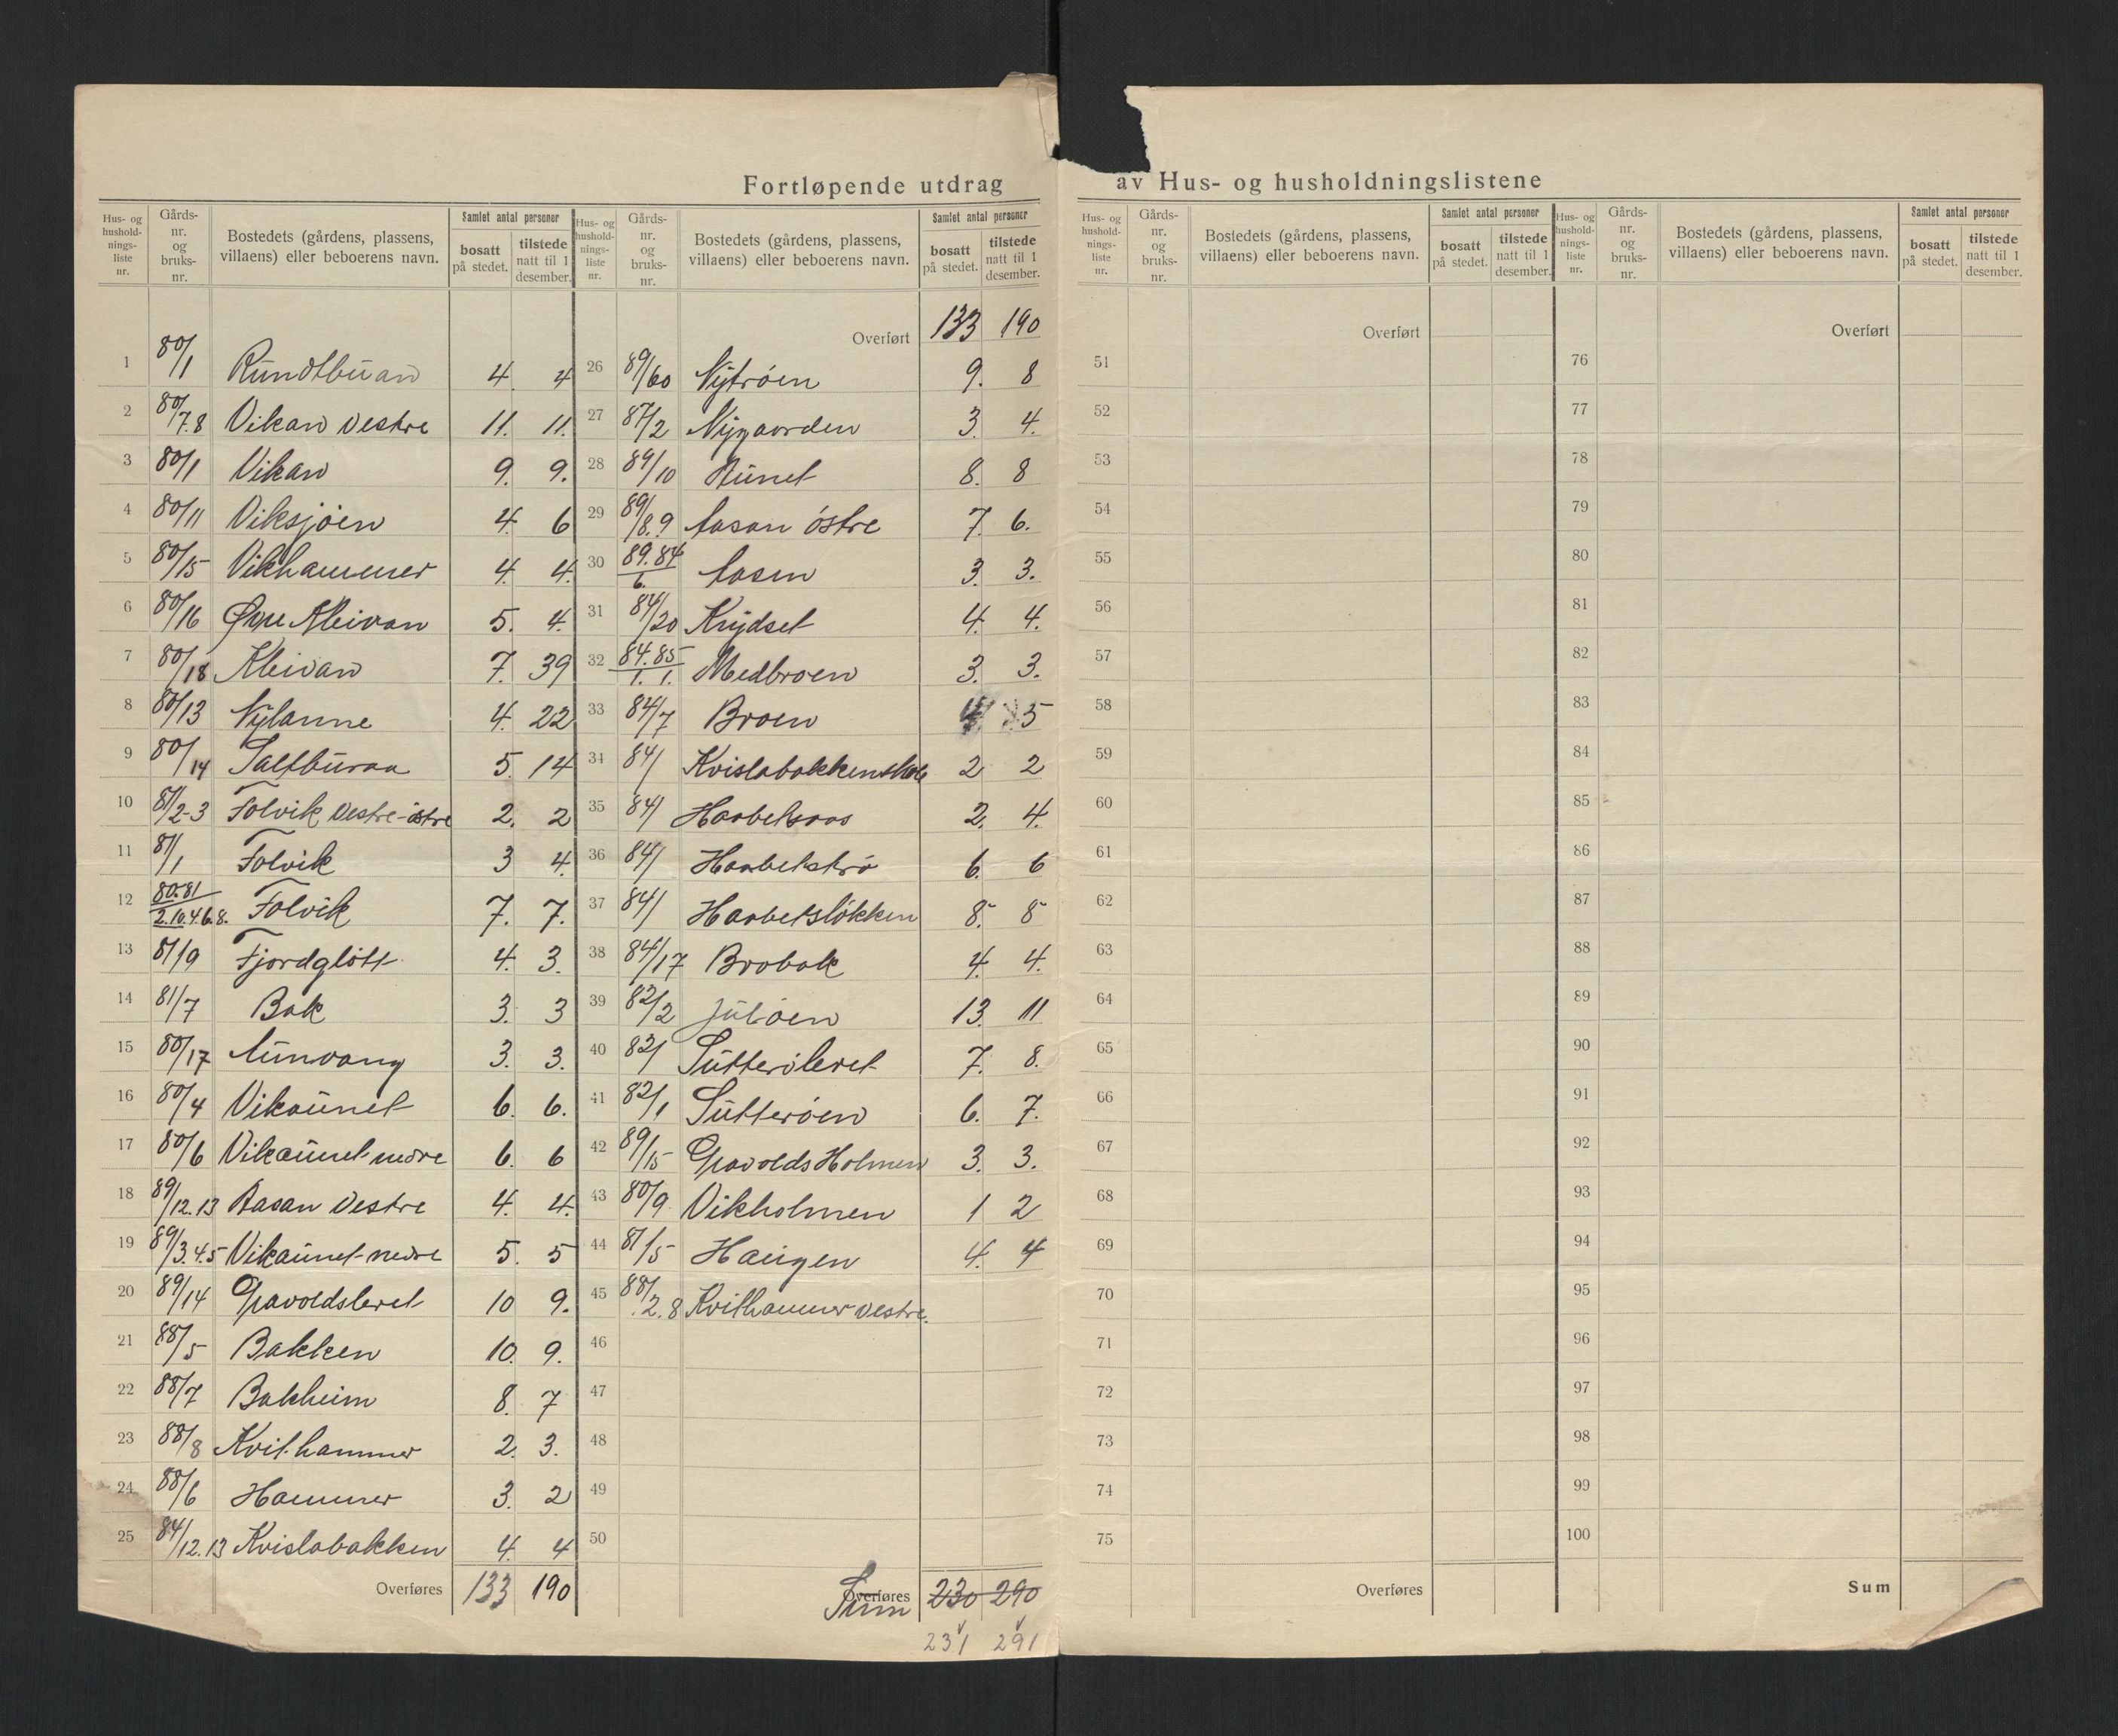 Fortløpende utdrag av Hus- og husholdningslistene
Hus- og hushold-nings-liste nr. Gårds-nr. og bruks-nr. Bostedets (gårdens, plassens, villaens) eller beboerens navn. Samlet antal personer bosatt på stedet. tilstede natt til 1 desember.
1 80/1 Rundtbuan 4. 4
2 80/7.8 Vikan vestre 11. 11.
3 80/1 Vikan 9. 9.
4 80/11 Viksjöen 4. 6
5 80/15 Vikhammer 4. 4.
6 80/16 Øvre Kleivan 5. 4.
7 80/18 Kleivan 7. 39
8 80/13 Nylanne 4. 22
9 80/14 Saltburaa 5. 14
10 81/2-3 Folvik vestre-östre 2. 2
11 81/1 Folvik 3 4.
12 80.81/2.10.4.6.8. Folvik 7. 7.
13 81/9 Fjordglött 4. 3.
14 81/7 Bak 3. 3
15 80/17 Aunvang 3. 3.
16 80/4 Vikaunet 6. 6.
17 80/6 Vikaunet nedre 6. 6
18 89/12.13 Aasan vestre 4. 4.
19 89/3.4.5 Vikaunet-nedre 5. 5
20 89/14 Gravoldsleret 10 9.
21 88/5 Bakken 10. 9.
22 88/7 Bakheim 8. 7
23 88/8 Kvithammer 2. 3.
24 88/6 Hammer 3. 2
25 84/12.13 Kvislabakken 4. 4
Overføres 133 190
Hus- og hushold-nings-liste nr. Gårds-nr. og bruks-nr. Bostedets (gårdens, plassens, villaens) eller beboerens navn. Samlet antal personer bosatt på stedet. tilstede natt til 1 desember.
Overført 133 190
26 89/60 Nytrøen 9. 8
27 87/2 Nygaarden 3. 4.
28 89/10 Aunet 8. 8
29 89/8.9 Aasan östre 7. 6.
30 89.84/6. Aasen 3. 3.
31 84/20 Krydset 4. 4.
32 84.85/1.1. Medbroen 3. 3.
33 84/7 Broen 4 5
34 84/ Kvislabakken skole 2 2
35 84/ Haabetsaas 2. 4.
36 84/ Haabetstrø 6. 6
37 84/ Haabetsløkken 8. 8
38 84/17 Brobak 4. 4.
39 82/2 Juløen 13. 11
40 82/ Sutterøleret 7. 8.
41 82/1 Sutterøen 6. 7.
42 89/15 Gravolds Holmen 3. 3.
43 80/9 Vikholmen 1 2
44 81/5 Haugen 4. 4
45 88/.2.8 Kvithammer vestre.
46
47
48
49
50
Overføres Sum 230 290
231 291
Hus- og hushold-nings-liste nr. Gårds-nr. og bruks-nr. Bostedets (gårdens, plassens, villaens) eller beboerens navn. Samlet antal personer bosatt på stedet. tilstede natt til 1 desember.
Overført
51
52
53
54
55
56
57
58
59
60
61
62
63
64
65
66
67
68
69
70
71
72
73
74
75
Overføres
Hus- og hushold-nings-liste nr. Gårds-nr. og bruks-nr. Bostedets (gårdens, plassens, villaens) eller beboerens navn. Samlet antal personer bosatt på stedet. tilstede natt til 1 desember.
Overført
76
77
78
79
80
81
82
83
84
85
86
87
88
89
90
91
92
93
94
95
96
97
98
99
100
Sum